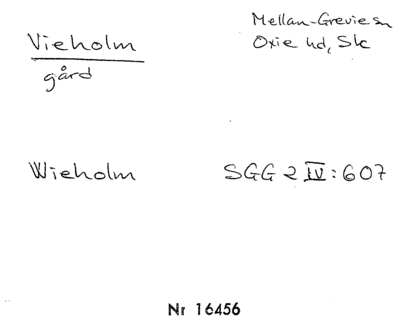 Vieholm
gård
Mellan-Grevie sn
Oxie hd, Sk
Wieholm
SGG 2 IV:607
Nr 16456